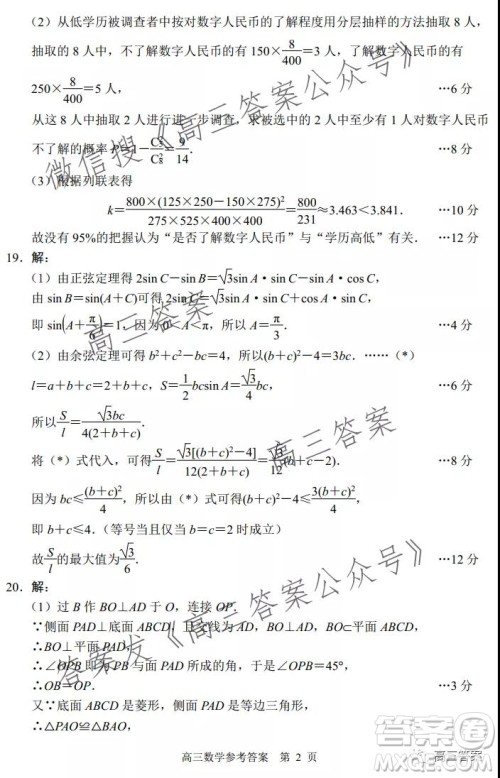 （2）从低学历被调查者中按对数字人民币的了解程度用分层抽样的方法抽取 8 人，
抽取的 8 人中，不了解数字人民币的有 150×8/400＝3 人，了解数字人民币的有
250×8/400＝5 人， …6 分
从这 8 人中抽取 2 人进行进一步调查，求被选中的 2 人中至少有 1 人对数字人民币
不了解的概率 P＝1－C²₅/C²₈＝9/14． …8 分
（3）根据列联表得
k＝800×(125×250－150×275)²/(275×525×400×400)＝800/231≈3.463＜3.841． …10 分
故没有 95%的把握认为“是否了解数字人民币”与“学历高低”有关． …12 分
19． 解：
（1）由正弦定理得 2sin C－sin B＝√3sin A·sin C－sin A·cos C，
由 sin B＝sin(A＋C)可得 2sin C＝√3sin A·sin C＋cos A·sin C，
即 sin(A＋π/6)＝1，因为 0＜A＜π，所以 A＝π/3． …4 分
（2）由余弦定理可得 b²＋c²－bc＝4，所以(b＋c)²－4＝3bc．……（*）
l＝a＋b＋c＝2＋b＋c，S＝1/2bcsin A＝√3/4bc， …6 分
所以S/l＝√3bc/4(2＋b＋c)．
将（*）式代入，可得S/l＝√3[(b＋c)²－4]/12(2＋b＋c)＝√3/12(b＋c－2)． …8 分
因为 bc≤(b＋c)²/4，所以由（*）式可得(b＋c)²－4≤3(b＋c)²/4，
即 b＋c≤4．（等号当且仅当 b＝c＝2 时成立）
故S/l的最大值为√3/6． …12 分
20． 解：
（1）过 B 作 BO⊥AD 于 O，连接 OP．
∵侧面 PAD⊥底面 ABCD，且交线为 AD，BO⊥AD，BO⊂平面 ABCD，
∴BO⊥平面 PAD，
∴∠OPB 即为 PB 与面 PAD 所成的角，于是∠OPB＝45°，
∴OB＝OP． …3 分
又∵底面 ABCD 是菱形，侧面 PAD 是等边三角形，
∴△PAO≌△BAO，
高三数学参考答案 第 2 页
微信搜《高三答案公众号》
高三答案
高三答案
答案发《高三答案公众号》
高三答案